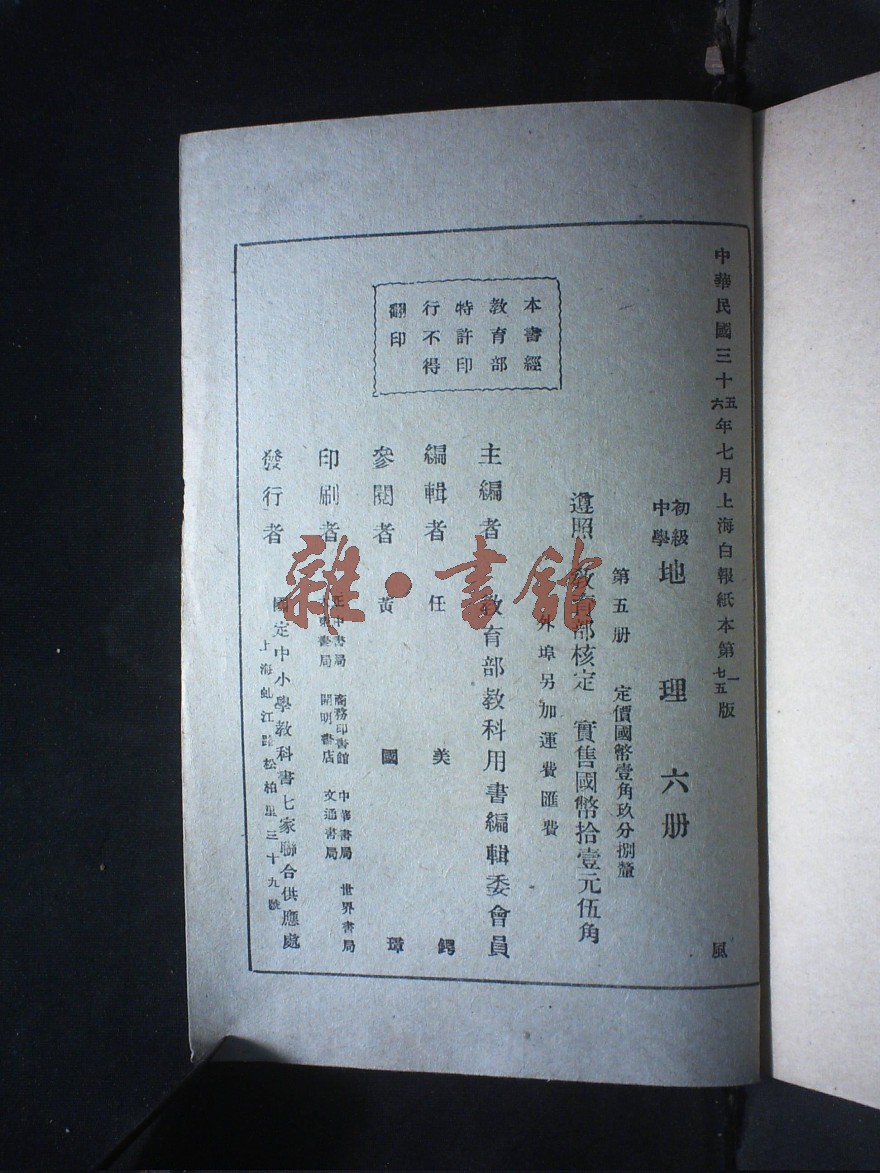 中華民國三十五六年七月上海白報紙本第一七五版
風
初級中學地理六册
第五册 定價國幣壹角玖分捌釐
遵照教育部核定 實售國幣拾壹元伍角
外埠另加運費匯費
本書經
教育部
特許印
行不得
翻印
主編者 教育部教科用書編輯委會員
編輯者 任美鍔
參閱者 黃國璋
印刷者 正中書局 商務印書館 中華書局 世界書局
書局 開明書店 文通書局
發行者 國定中小學教科書七家聯合供應處
上海虬江路松柏里三十九號
雜·書館